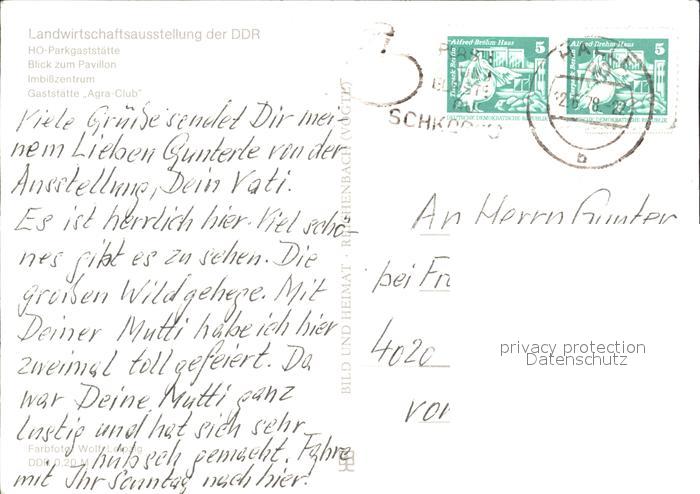 Landwirtschaftsausstellung der DDR
HO-Parkgaststätte
Blick zum Pavillon
Imbißzentrum
Gaststätte „Agra-Club"
Viele Grüße sendet Dir mei-
nem Lieben Gunterle von der
Ausstellung, Dein Vati.
Es ist herrlich hier. Viel schö-
nes gibt es zu sehen. Die
großen Wildgehege. Mit
Deiner Mutti habe ich hier
zweimal toll gefeiert. Da
war Deine Mutti ganz
lustig und hat sich sehr
hübsch gemacht. Fahre
mit Ihr Sonntag nach hier!
Farbfoto: Wolf, Leipzig
DDR 0,20 M
BILD UND HEIMAT · REICHENBACH (VOGTL)
Alfred Brehm Haus 5
Tierpark Berlin
DEUTSCHE DEMOKRATISCHE REPUBLIK
Alfred Brehm Haus 5
Tierpark Berlin
DEUTSCHE DEMOKRATISCHE REPUBLIK
HALLE
b
An Herrn Gunter
bei Fr
4020
vor
privacy protection
Datenschutz